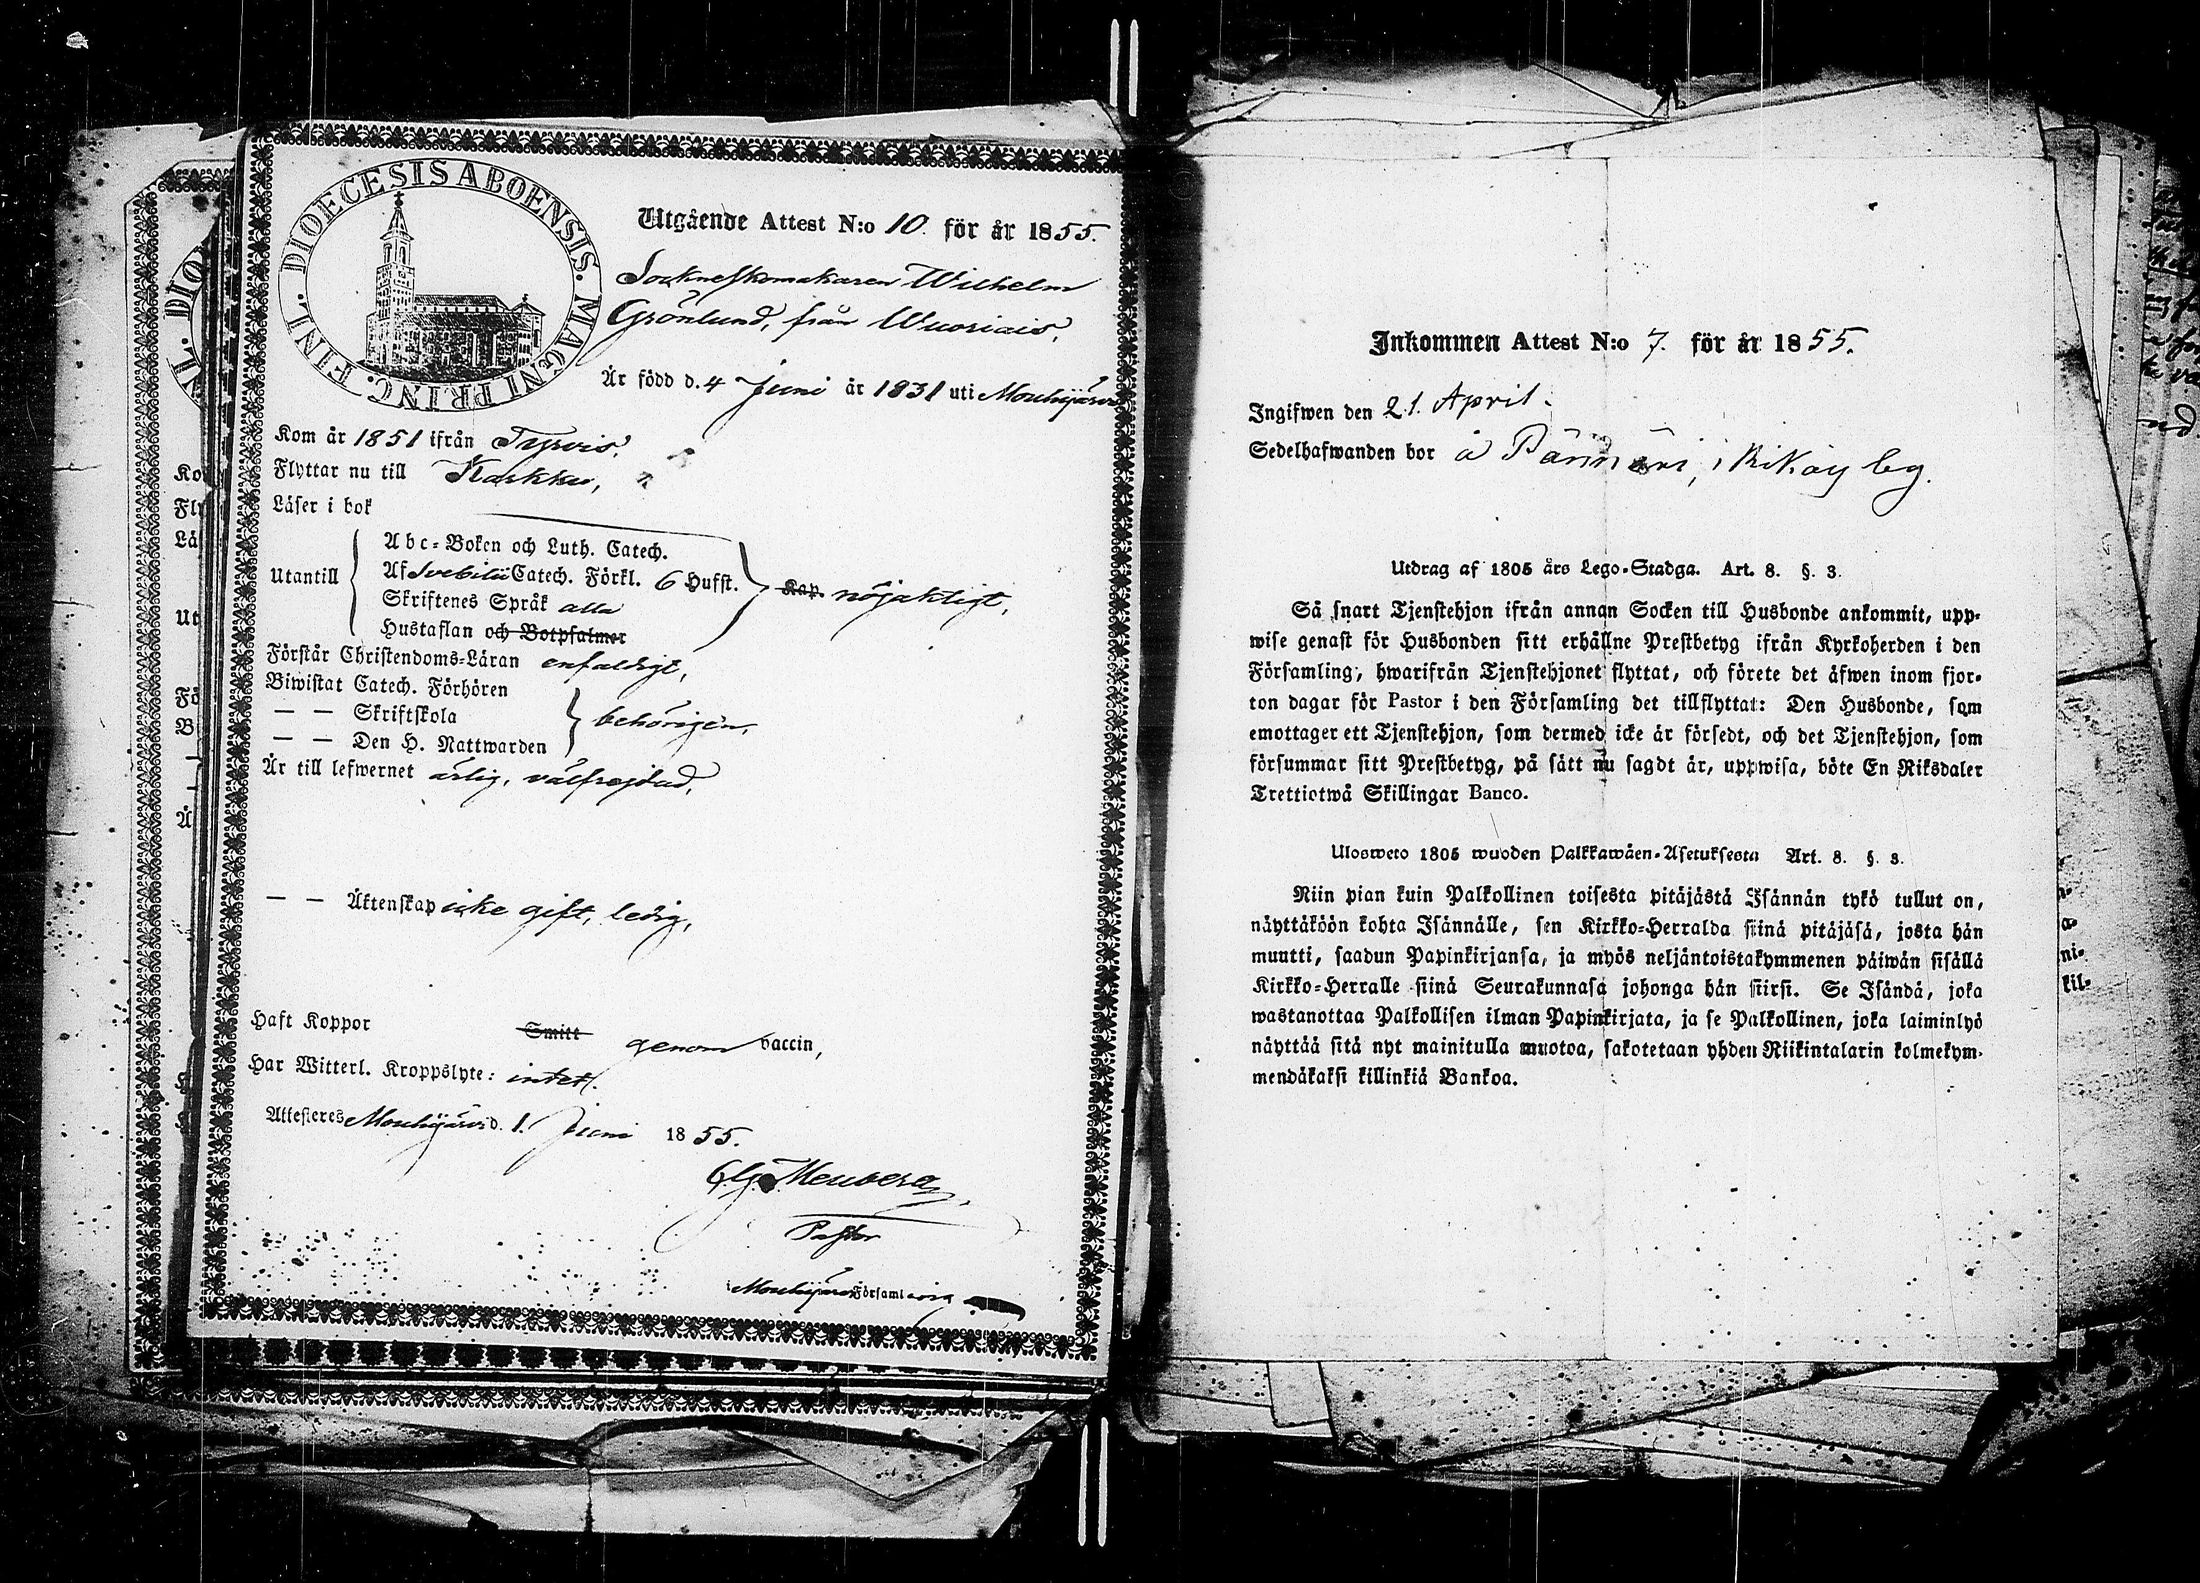 DIOECESIS ABOENSIS. MAGNI PRINC. FINL.
Utgående Attest N:o 10. för år 1855.
Sockneskomakaren Wilhelm
Grönlund, från Wuoriais,
Är född d. 4 Juni år 1831 uti Mouhijärvi
Kom år 1851 ifrån Tyrvis,
Flyttar nu till Karkku,
Läser i bok
Utantill
Abc-Boken och Luth. Catech.
Af Svebilii Catech. Förkl. 6 Hufst.
Skriftenes Språk alla
Hustaflan och Botpsalmer
Kap. nöjaktigt,
Förstår Christendoms-Läran enfaldigt,
Biwistat Catech. Förhören
— — Skriftskola
— — Den H. Nattwarden
behörigen,
Är till lefwernet ärlig, välfrejdad,
— — Äktenskap icke gift, ledig,
Haft Koppor Smitt genom vaccin,
Har Witterl. Kroppslyte: intet.
Attesteres Mouhijärvi d. 1. Juni 1855.
Pastor
Mouhijärvi Församl
Inkommen Attest N:o 7. för år 1855.
Ingifwen den 21. April.
Sedelhafwanden bor å i by.
Utdrag af 1805 års Lego-Stadga. Art. 8. §. 3.
Så snart Tjenstehjon ifrån annan Socken till Husbonde ankommit, upp-
wise genast för Husbonden sitt erhållne Prestbetyg ifrån Kyrkoherden i den
Församling, hwarifrån Tjenstehjonet flyttat, och förete det äfwen inom fjor-
ton dagar för Pastor i den Församling det tillflyttat: Den Husbonde, som
emottager ett Tjenstehjon, som dermed icke är försedt, och det Tjenstehjon, som
försummar sitt Prestbetyg, på sätt nu sagdt är, uppwisa, böte En Riksdaler
Trettiotwå Skillingar Banco.
Ulosweto 1805 wuoden Palkkawäen-Asetuksesta Art. 8. §. 3.
Niin pian kuin Palkollinen toisesta pitäjästä Isännän tykö tullut on,
näyttäköön kohta Isännälle, sen Kirkko-Herralda siinä pitäjäsä, josta hän
muutti, saadun Papinkirjansa, ja myös neljäntoistakymmenen päiwän sisällä
Kirkko-Herralle siinä Seurakunnasa johonga hän siirsi. Se Isändä, joka
wastanottaa Palkollisen ilman Papinkirjata, ja se Palkollinen, joka laiminlyö
näyttää sitä nyt mainitulla muotoa, sakotetaan yhden Riikintalarin kolmekym-
mendäkaksi killinkiä Bankoa.